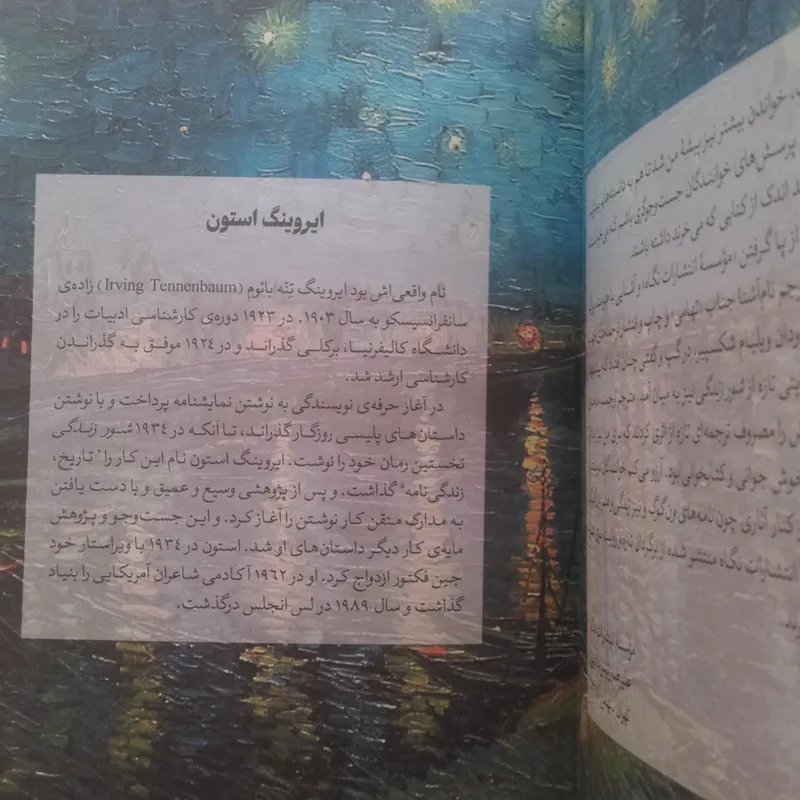 ایروینگ استون
نام واقعی‌اش بود ایروینگ تِنّه بائوم (Irving Tennenbaum) زاده‌ی
سانفرانسیسکو به سال ۱۹۰۳. در ۱۹۲۳ دوره‌ی کارشناسی ادبیات را در
دانشگاه کالیفرنیا، برکلی گذراند و در ۱۹۲۴ موفق به گذراندن
کارشناسی ارشد شد.
در آغاز حرفه‌ی نویسندگی به نوشتن نمایشنامه پرداخت و با نوشتن
داستان‌های پلیسی روزگار گذراند، تا آنکه در ۱۹۳۴ شور زندگی
نخستین رمان خود را نوشت. ایروینگ استون نام این کار را "تاریخ،
زندگی‌نامه" گذاشت. و پس از پژوهشی وسیع و عمیق و با دست یافتن
به مدارک متقن کار نوشتن را آغاز کرد. و این جست‌وجو و پژوهش
مایه‌ی کار دیگر داستان‌های او شد. استون در ۱۹۳۴ با ویراستار خود
جین فکتور ازدواج کرد. او در ۱۹۶۲ آکادمی شاعران آمریکایی را بنیاد
گذاشت و سال ۱۹۸۹ در لس انجلس درگذشت.
خواندن بیشتر نیز پیشهٔ من شد تا هم به دانسته‌ها
پرسش‌های خوانندگان جست‌وجوگری باشم که
اندک از کتابی که می‌خرند داشته باشند.
از پا گرفتن «مؤسسهٔ انتشارات نگاه» و آشنایی
نام‌آشنا جناب و چاپ و انتشار ترجمه‌های
ویلیام شکسپیر، در گپ و گفتی چنان افتاد که
تازه از شور زندگی نیز به میان آمد.
را مصروف ترجمه‌ای تازه از اثری کردند که
جوانی و کتابخوانی بود. آرزو می‌کنم خوانندگان
کنار آثاری چون نامه‌های ون‌گوگ و نیز زندگی
انتشارات نگاه منتشر شده از
مؤسسهٔ انتشارات نگاه
تهران